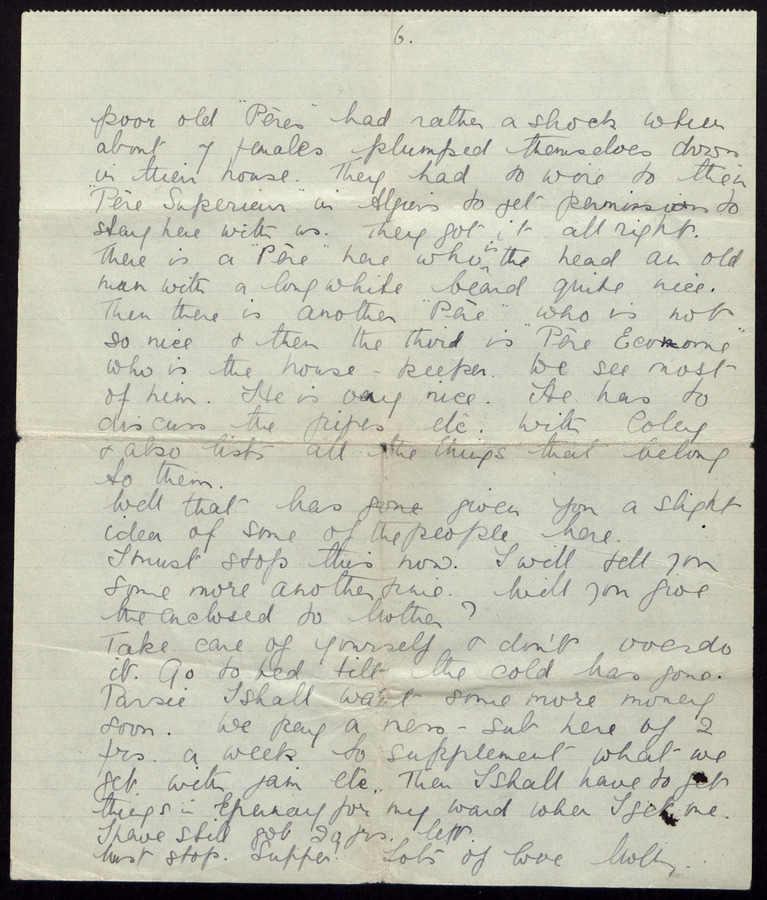 6.
poor old "Pères" had rather a shock when
about 7 females plumped themselves down
in their house. They had to wire to their
"Père Superieur" in Algiers to get permission to
stay here with us. They got it all right.
There is a "Père" here who is the head an old
man with a long white beard quite nice.
Then there is another "Père" who is not
so nice & then the third is "Père Econome"
who is the house-keeper. We see most
of him. He is very nice. He has to
discuss the pipes etc. with Coley
& also lists all the things that belong
to them.
Well that has given you a slight
idea of some of the people here.
I must stop this now. I will tell you
some more another time. Will you give
the enclosed to Mother?
Take care of yourself & don't overdo
it. Go to bed till the cold has gone.
I shall want some more money
soon. We pay a mess-sub here of 2
frs. a week to supplement what we
get with jam etc. Then I shall have to get
things in Epernay for my ward when I get one.
I have still got frs. left.
Must stop. Supper. Lots of love